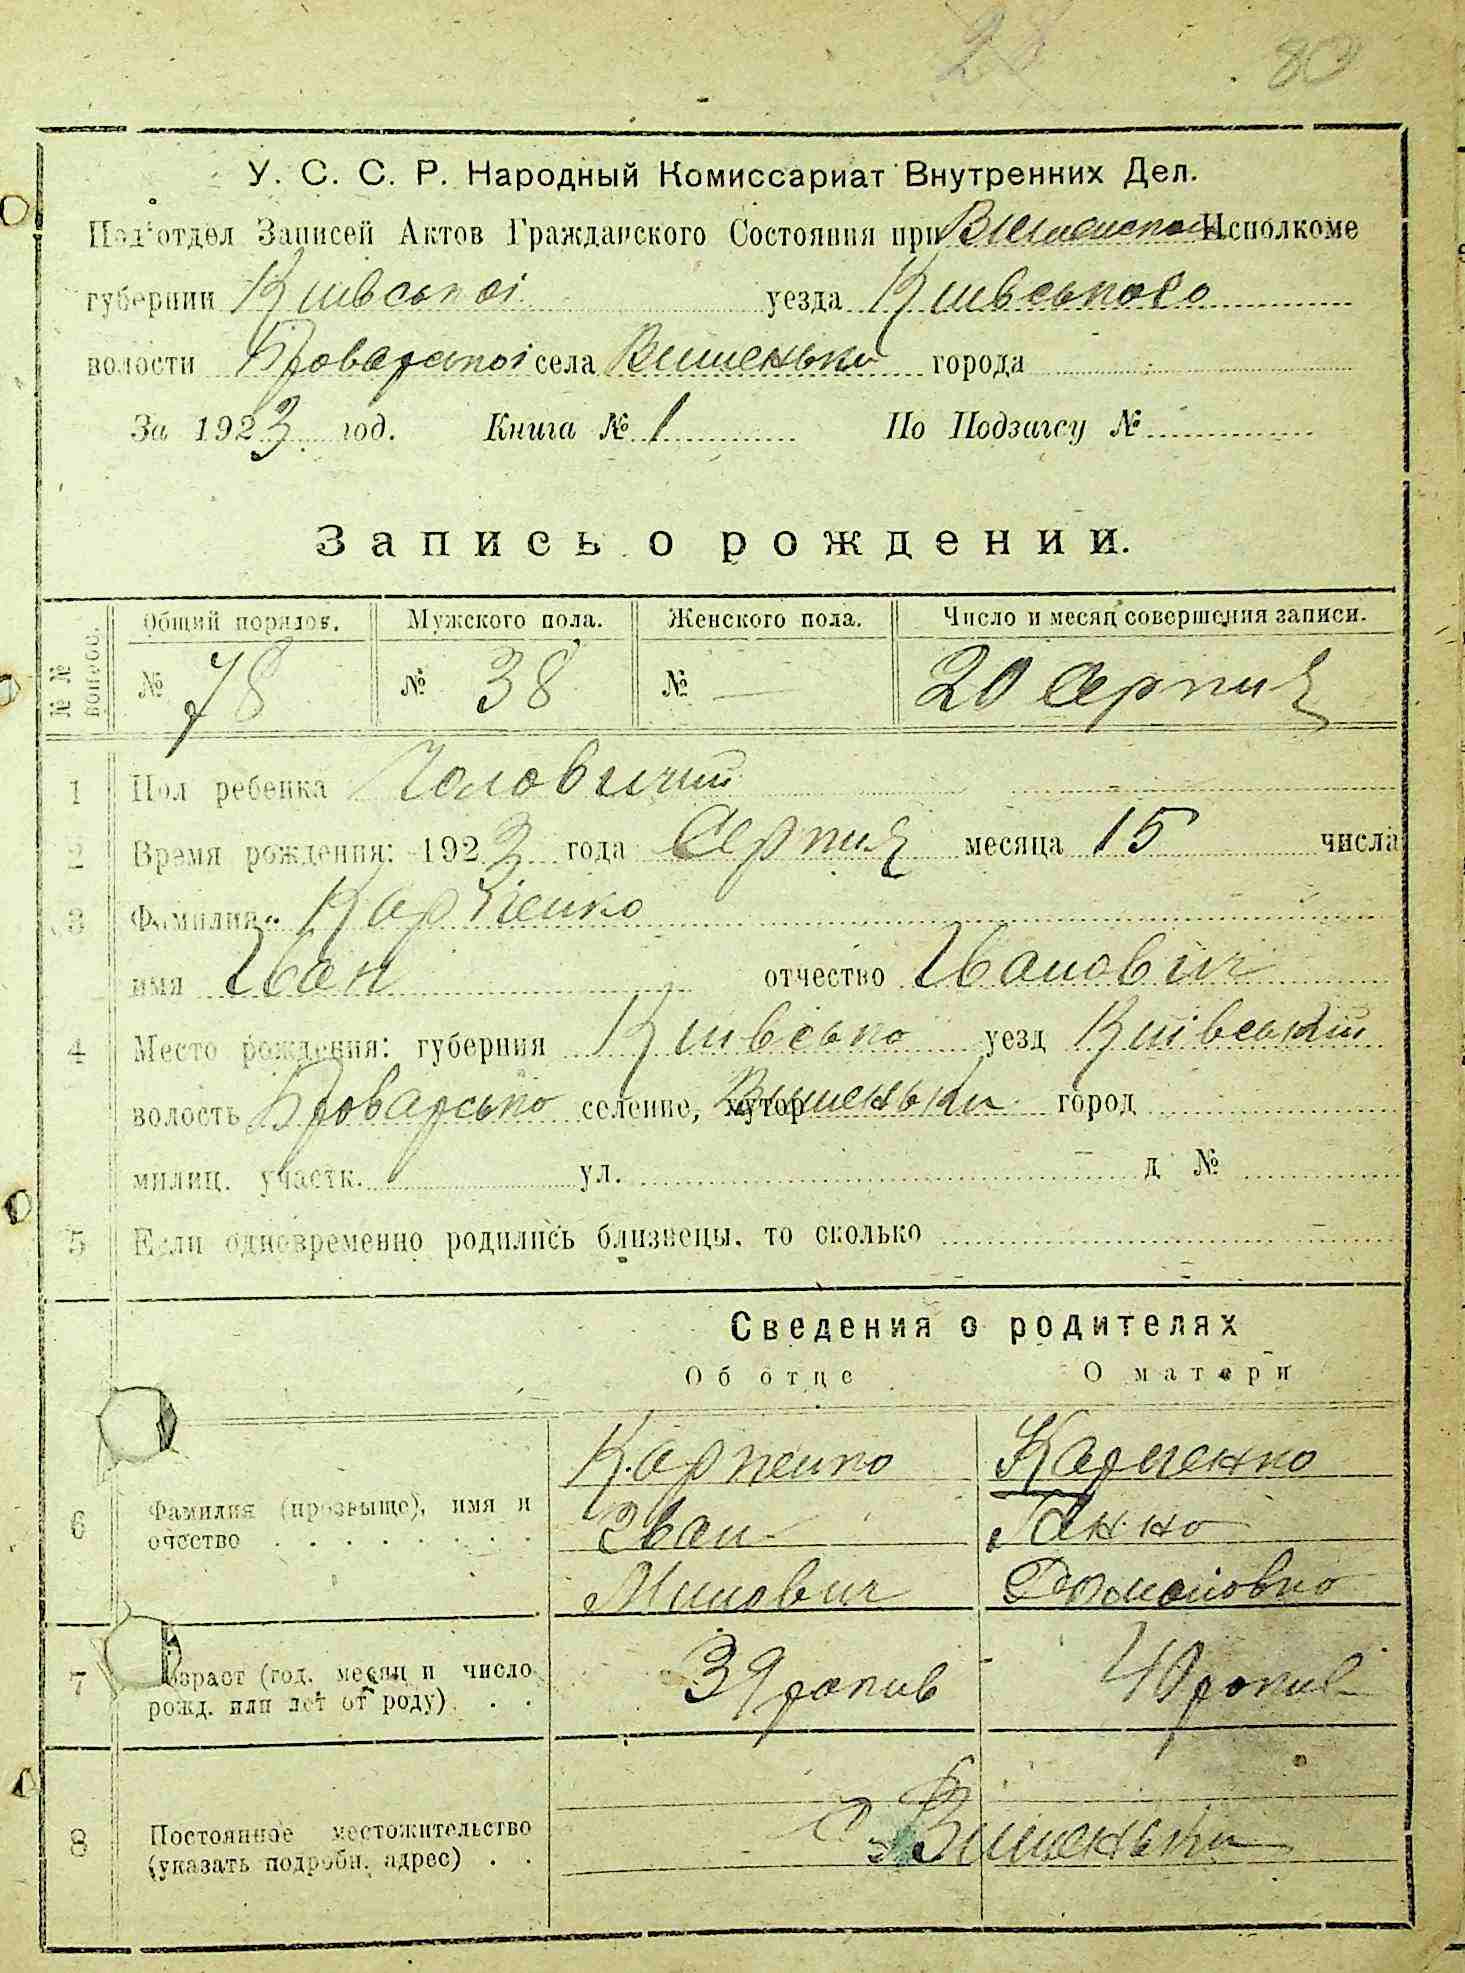 80
У. С. С. Р. Народный Комиссариат Внутренних Дел.
Под'отдел Записей Актов Гражданского Состояния при Вишенском Исполкоме
губернии Київської уезда Київського
волости Броварської села Вишеньки города
За 1923 год. Книга № 1 По Подзагсу №
Запись о рождении.
№№ вопросо. Общий порядов. Мужского пола. Женского пола. Число и месяц совершения записи.
№ 78 № 38 № — 20 Серпня
1 Пол ребенка Чоловичий
2 Время рождения: 1923 года Серпня месяца 15 числа
3 Фамилия Карпенко
имя Іван отчество Іванович
4 Место рождения: губерния Київська уезд Київський
волость Броварська селение, хутор Вишеньки город
милиц. участк. ул. д №
5 Если одновременно родились близнецы, то сколько
Сведения о родителях
Об отце О матери
Карпенко Карпенко
6 Фамилия (прозвыще), имя и Іван Ганна
очество Минович Романовна
7 Возраст (год. месяц и число 39 років 40 років
рожд. или лет от роду)
8 Постоянное местожительство с. Вишеньки
(указать подробн. адрес)